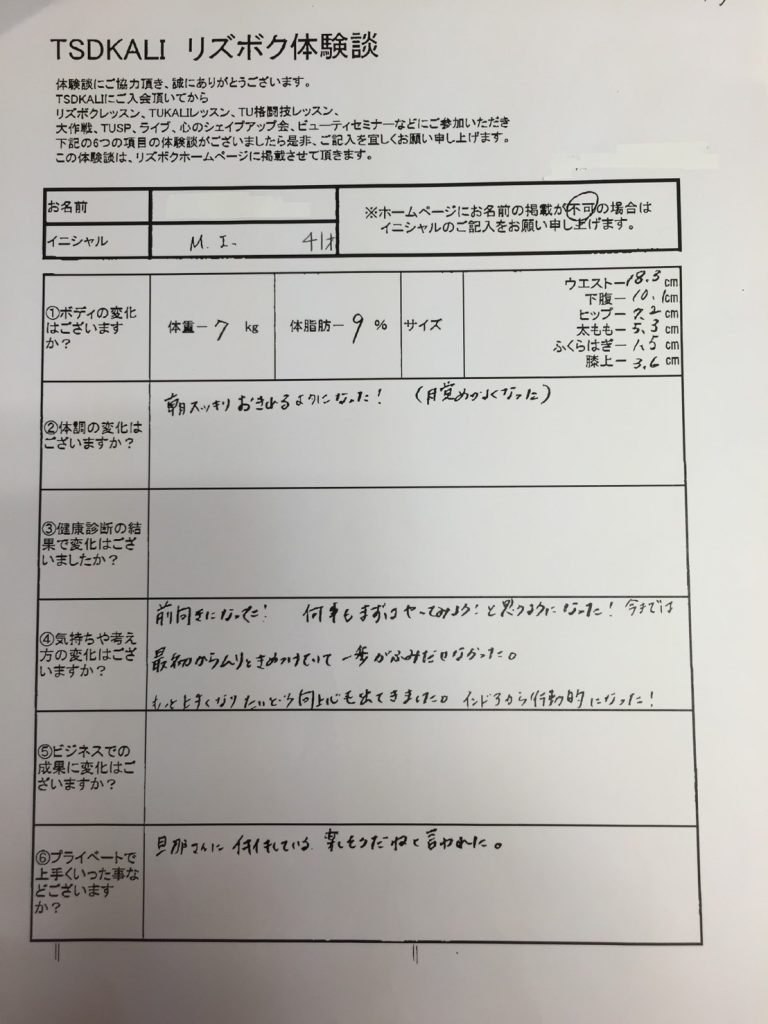 TSDKALI リズボク体験談
体験談にご協力頂き、誠にありがとうございます。
TSDKALIにご入会頂いてから
リズボクレッスン、TUKALIレッスン、TU格闘技レッスン、
大作戦、TUSP、ライブ、心のシェイプアップ会、ビューティセミナーなどにご参加いただき
下記の6つの項目の体験談がございましたら是非、ご記入を宜しくお願い申し上げます。
この体験談は、リズボクホームページに掲載させて頂きます。
お名前
※ホームページにお名前の掲載が不可の場合は
イニシャルのご記入をお願い申し上げます。
イニシャル M.I. 41才
①ボディの変化
はございます
か？
体重ー7 kg
体脂肪ー9 %
サイズ
ウエストー18.3cm
下腹ー10.1cm
ヒップー7.2cm
太ももー5.3cm
ふくらはぎー1.5cm
膝上ー3.6cm
②体調の変化は
ございますか？
朝スッキリおきれるようになった！ （目覚めがよくなった）
③健康診断の結
果で変化はござ
いましたか？
④気持ちや考え
方の変化はござ
いますか？
前向きになった！ 何事もまずはやってみよう！と思うようになった！今までは
最初からムリときめつけていて一歩がふみだせなかった。
もっと上手くなりたいという向上心も出てきました。インドアから行動的になった！
⑤ビジネスでの
成果に変化はご
ざいますか？
⑥プライベートで
上手くいった事な
どございます
か？
旦那さんにイキイキしている 楽しそうだねと言われた。